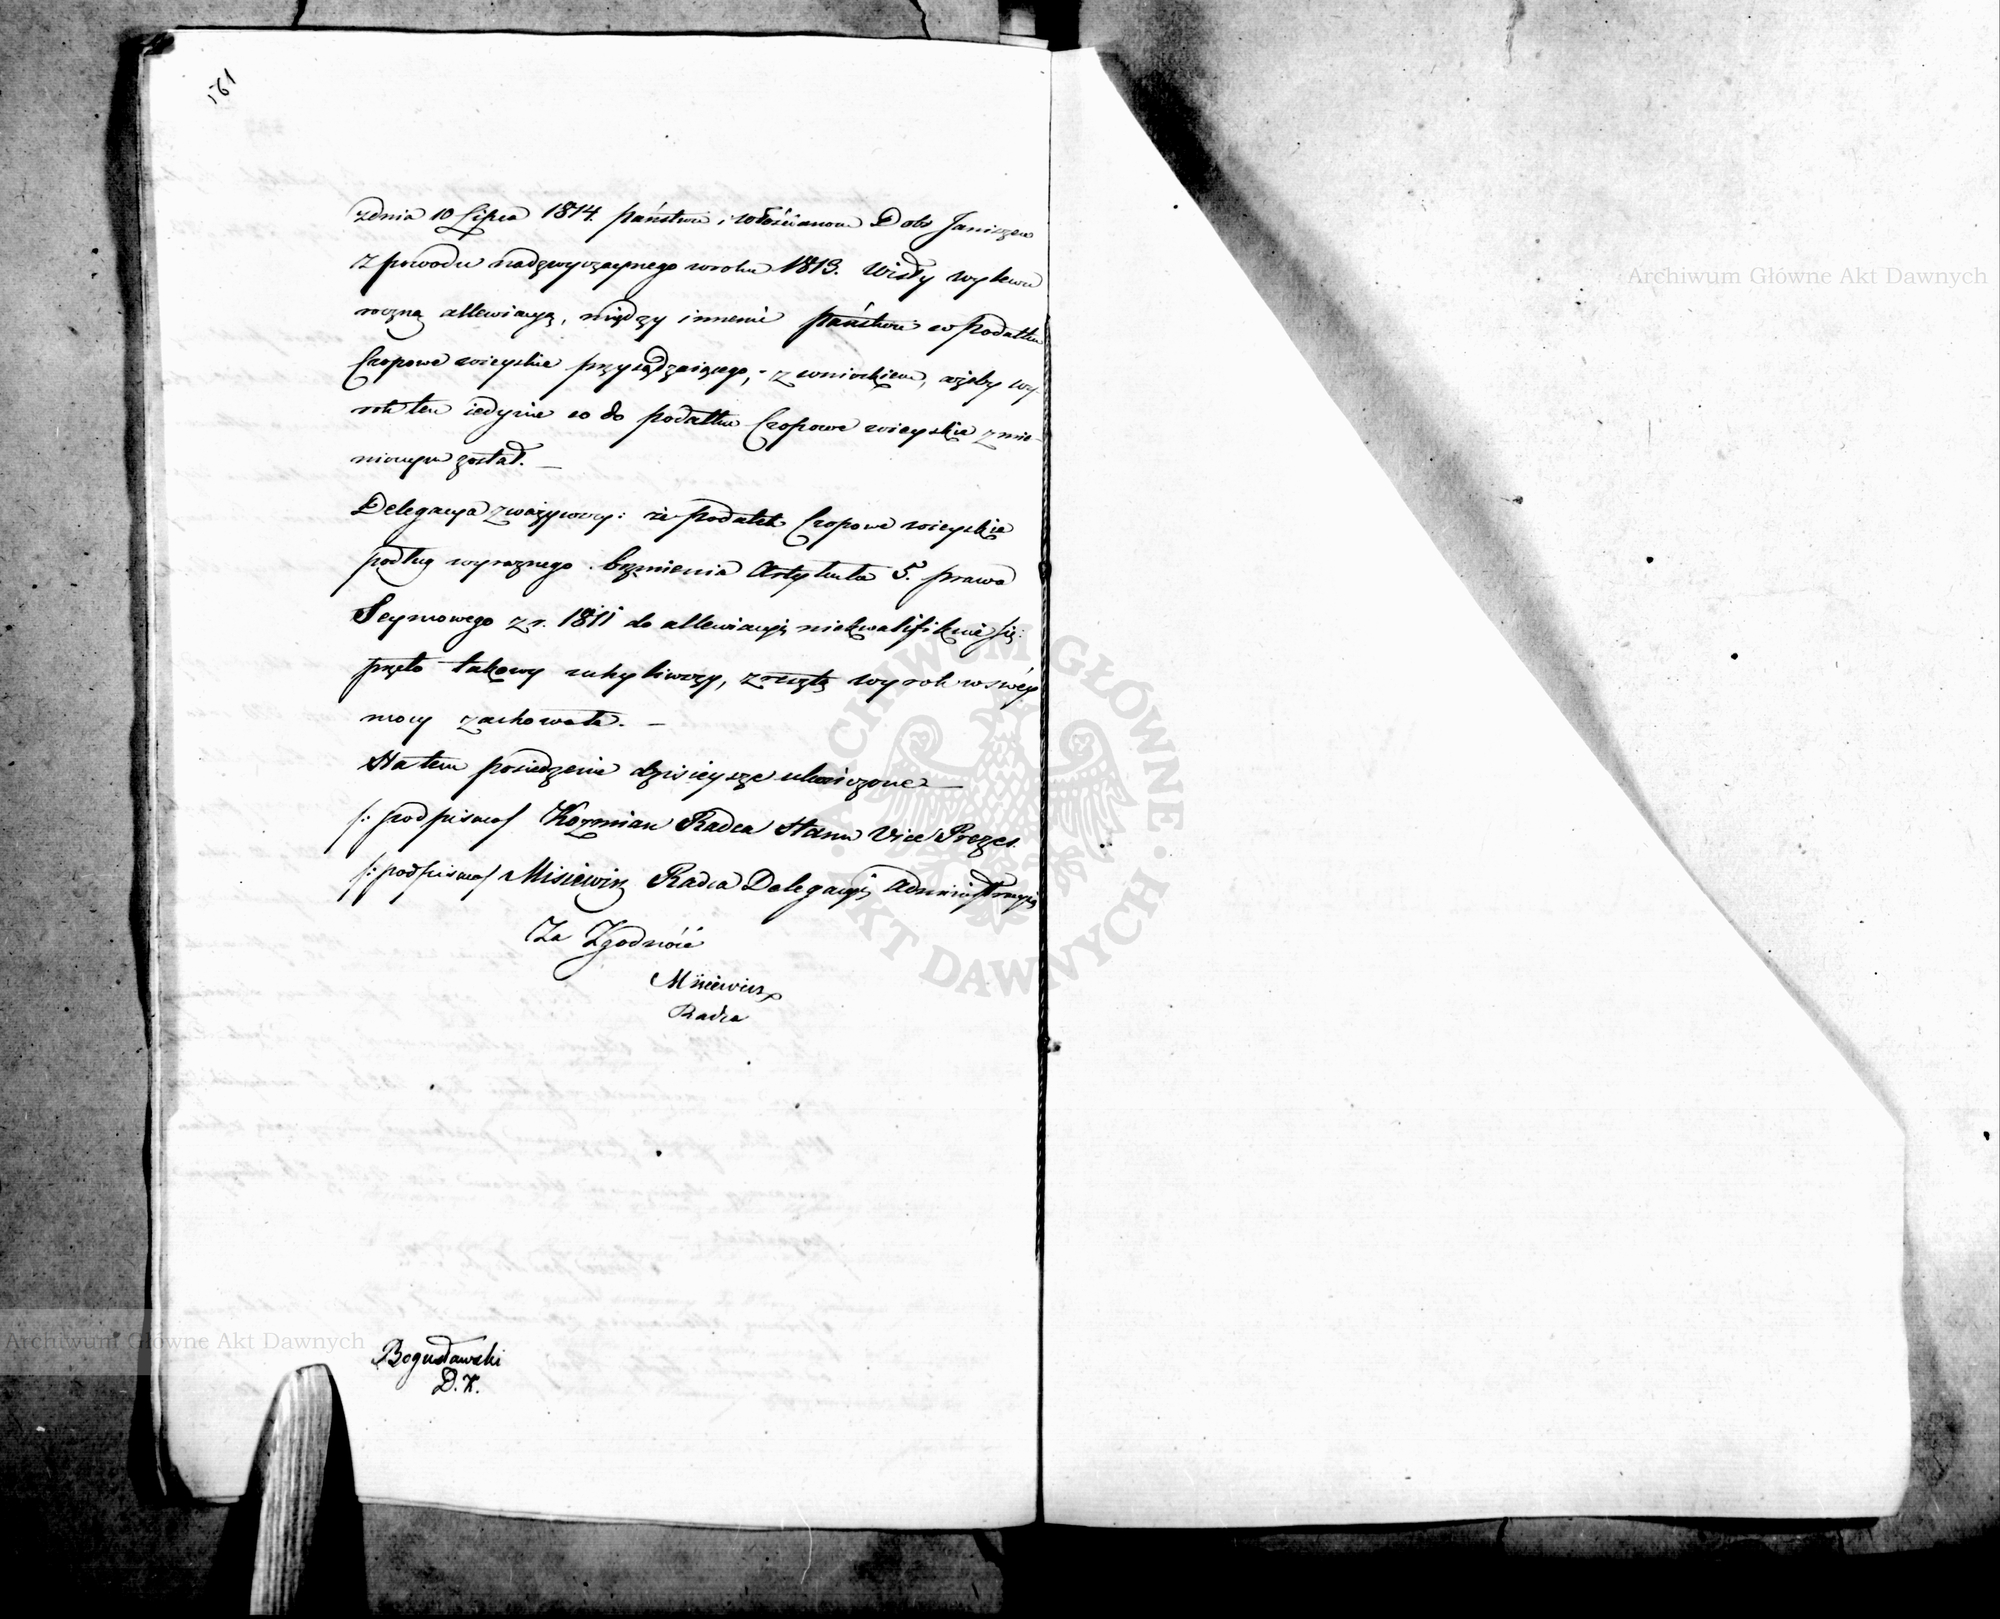 561
z dnia 10 Lipca 1814. państwu i włościanom Dobr Janiszew
z powodu nadzwyczaynego w roku 1813. Wisły wylewu
roczną allewiacyą, między innemi państwu w podatku
Czopowe wieyskie przysądzaiącego, z wnioskiem, ażeby wy-
rok ten iedynie co do podatku Czopowe wieyskie zmie-
nionym został. —
Delegacya zważywszy: że podatek Czopowe wieyskie
podług wyraznego brzmienia Artykułu 5. prawa
Seymowego z r. 1811 do allewiacyi niekwalifikuie się:
przeto takowy uchyliwszy, zresztą wyrok w swéy
mocy zachowała. —
Na tem posiedzenie dzisieysze ukończone —
/: podpisano/ Kozmian Radca Stanu Vice Prezes.
/: podpisano/ Misiewicz Radca Delegacyi Administracyi
Za Zgodność
Misiewicz
Radca
Bogusławski
D. K.
Archiwum Główne Akt Dawnych
Archiwum Główne Akt Dawnych
ARCHIWUM GŁÓWNE · AKT DAWNYCH ·